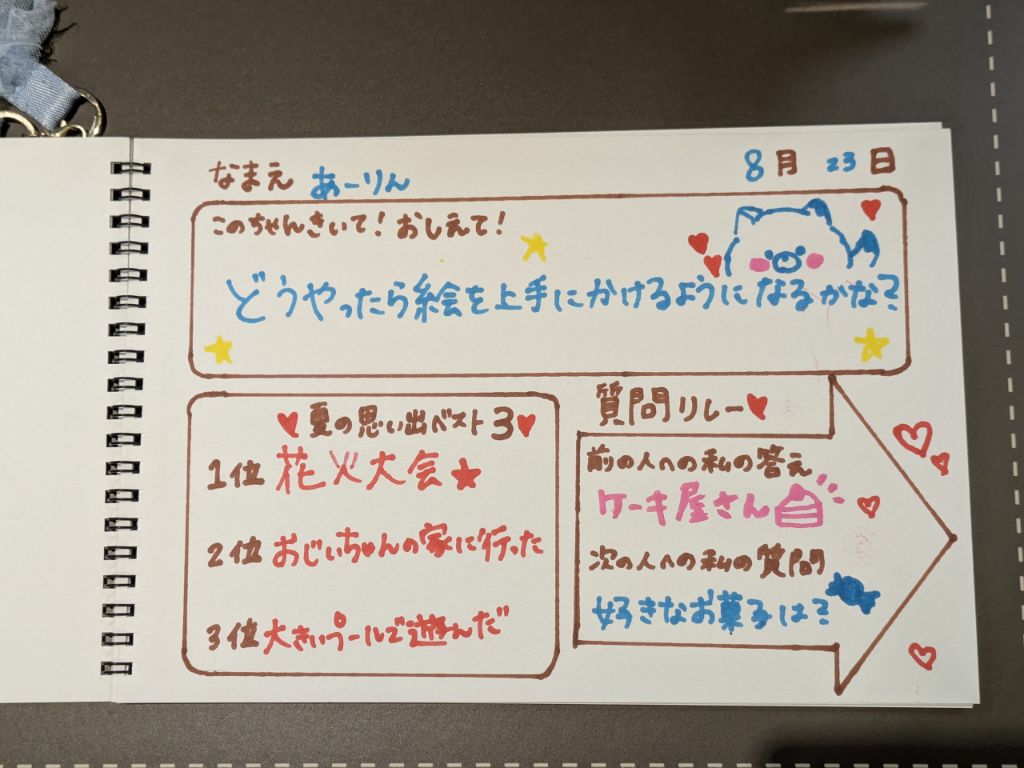 なまえ あーりん
8月 23日
このちゃんきいて！おしえて！
どうやったら絵を上手にかけるようになるかな？
夏の思い出ベスト3
1位 花火大会
2位 おじいちゃんの家に行った
3位 大きいプールで遊んだ
質問リレー
前の人への私の答え
ケーキ屋さん
次の人への私の質問
好きなお菓子は？